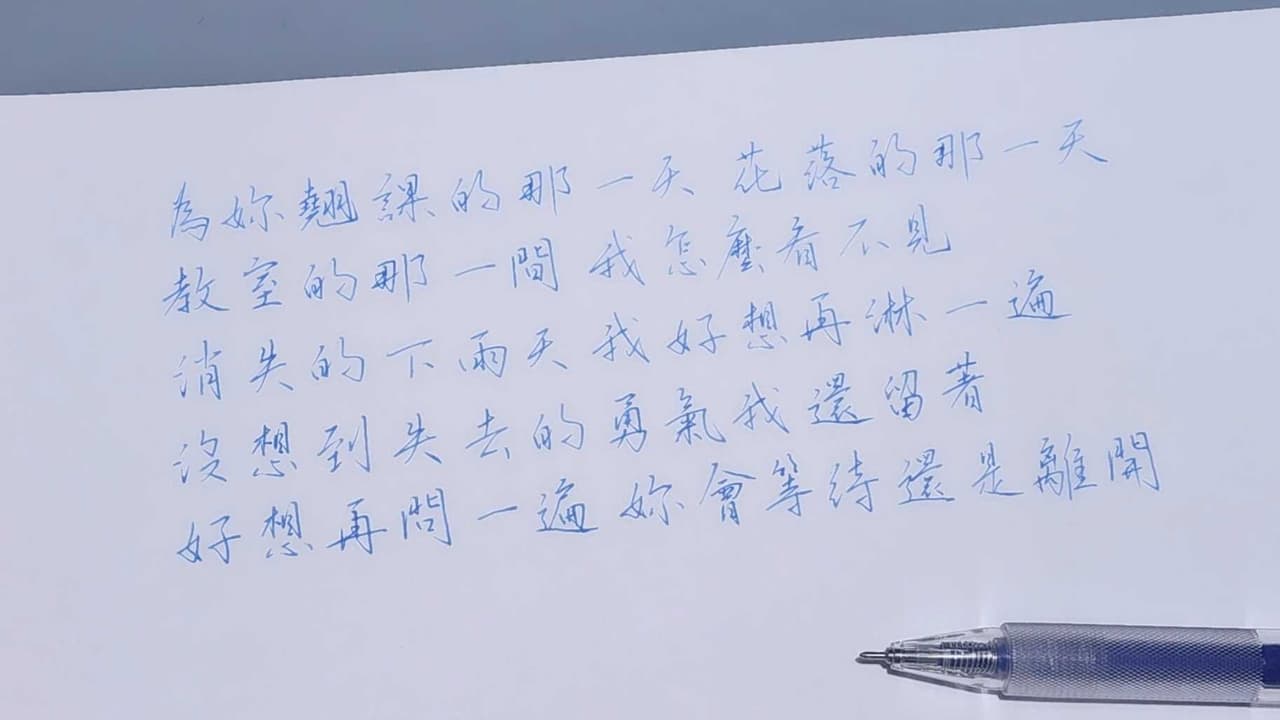 為妳翹課的那一天 花落的那一天
教室的那一間 我怎麼看不見
消失的下雨天 我好想再淋一遍
沒想到失去的勇氣我還留著
好想再問一遍 妳會等待還是離開